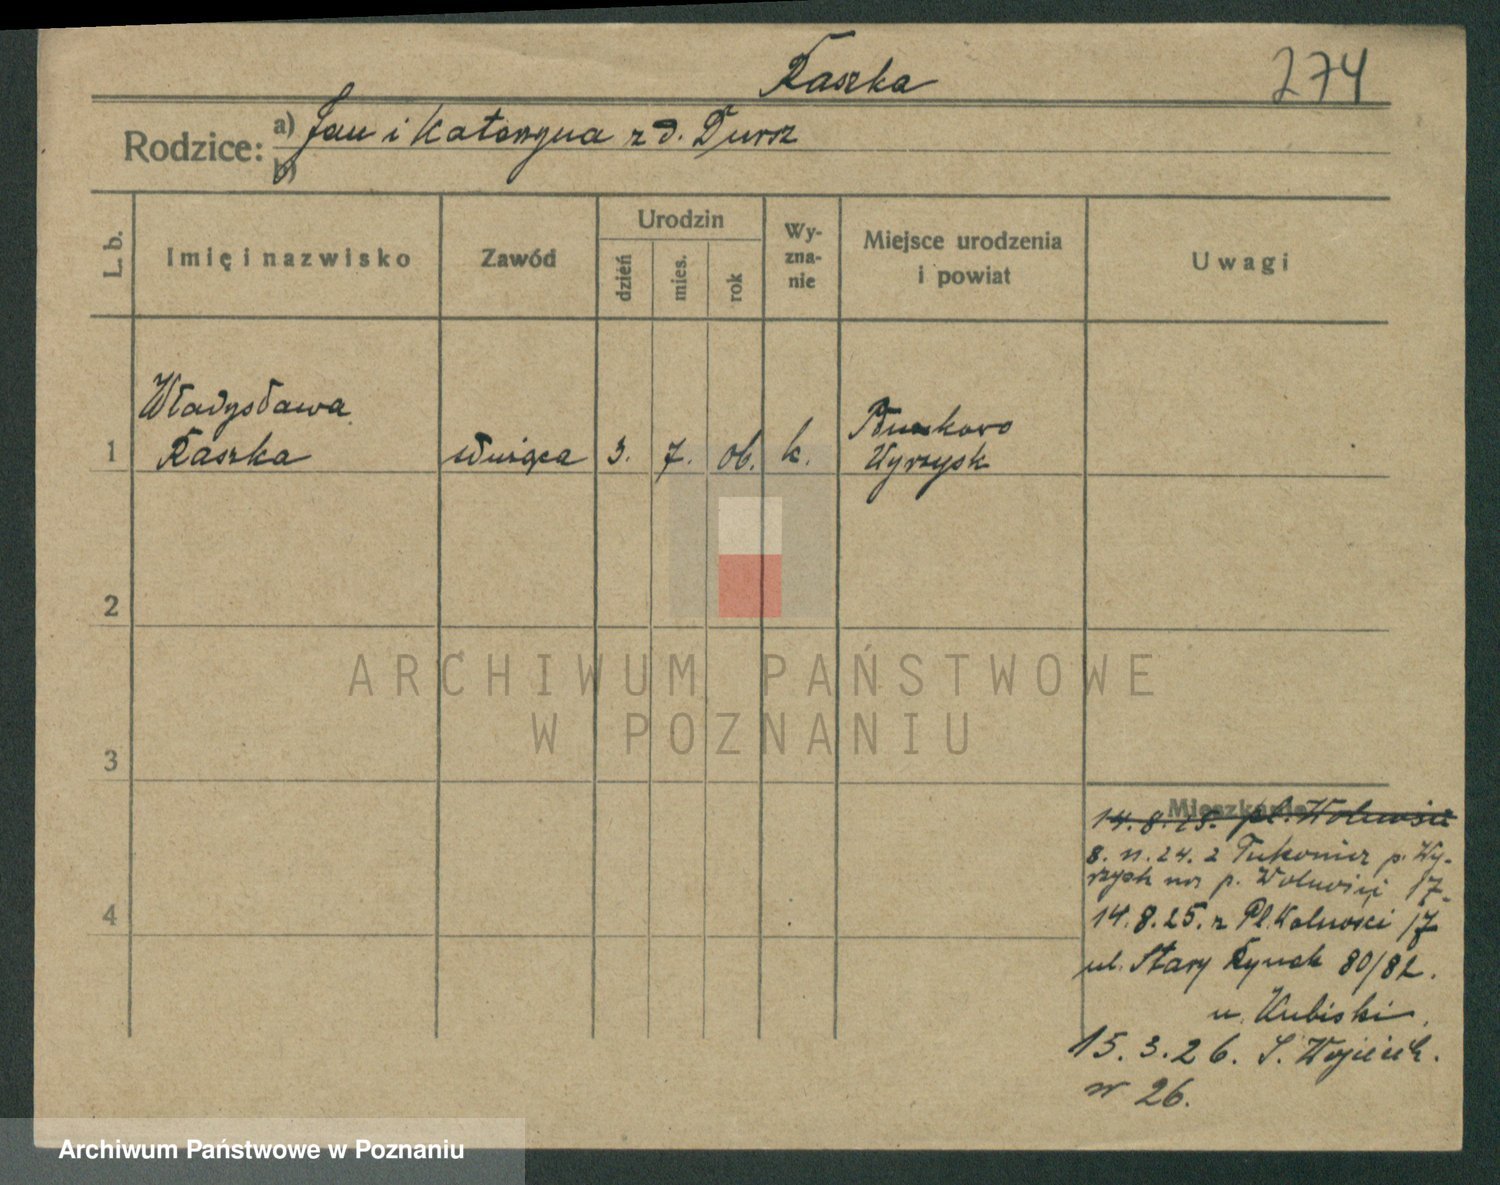 Raszka
274
Rodzice:
a) Jan i Katarzyna z d. Dursz
b)
L. b.
Imię i nazwisko
Zawód
Urodzin
dzień
mies.
rok
Wy-
zna-
nie
Miejsce urodzenia
i powiat
Uwagi
Władysława
1 Raszka służąca 3. 7. 06. k.
Wyrzysk
2
3
4
Mieszkanie
14. 8. 25. pl. Wolności
8. 11. 24. z p. Wy-
rzysk na p. Wolności 17.
14. 8. 25. z Pl. Wolności 17
ul. Stary Rynek 80/82.
u. Kubiski.
15. 3. 26. Ś. Wojciech.
nr 26.
ARCHIWUM PAŃSTWOWE
W POZNANIU
Archiwum Państwowe w Poznaniu